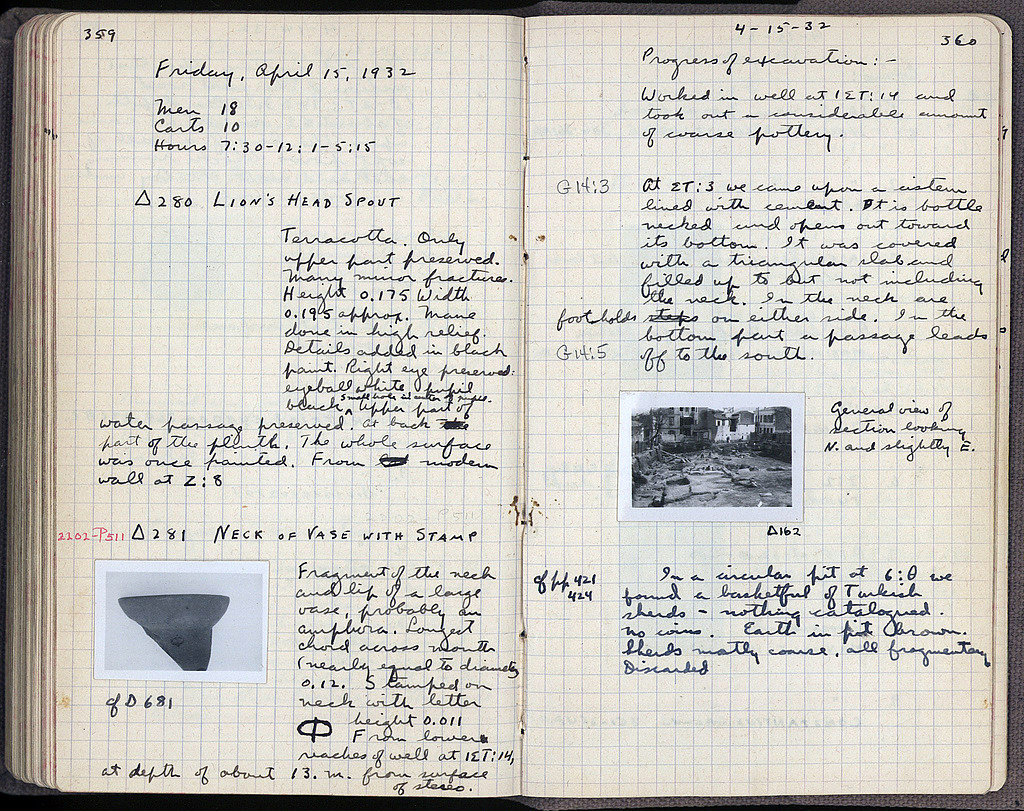 359
Friday, April 15, 1932
Men 18
Carts 10
Hours 7:30-12; 1-5:15
Δ280 LION'S HEAD SPOUT
Terracotta. Only
upper part preserved.
Many minor fractures.
Height 0.175 Width
0.195 approx. Mane
done in high relief.
Details added in black
paint. Right eye preserved:
eyeball white, pupil
small hole in center of pupil.
black ^ Upper part of
water passage preserved. At back the
part of the plinth. The whole surface
was once painted. From modern
wall at Z:8
2202-P511 Δ281 NECK OF VASE WITH STAMP
Fragment of the neck
and lip of a large
vase, probably an
amphora. Longest
chord across mouth
(nearly equal to diameter)
0.12. Stamped on
neck with letter
Φ height 0.011
From lower
reaches of well at 1ΣT:14,
at depth of about 13. m. from surface
of stereo.
cf D 681
4-15-32
360
Progress of excavation:-
Worked in well at 1ΣT:14 and
took out a considerable amount
of coarse pottery.
G14:3 At ΣT:3 we came upon a cistern
lined with cement. It is bottle
necked and opens out toward
its bottom. It was covered
with a triangular slab and
filled up to but not including
the neck. In the neck are
footholds steps on either side. In the
bottom part a passage leads
G14:5 off to the south.
General view of
section looking
N. and slightly E.
Δ162
cf pp 421
424
In a circular pit at 6:Θ we
found a basketful of Turkish
sherds - nothing catalogued.
no coins. Earth in pit brown.
Sherds mostly coarse, all fragmentary
Discarded